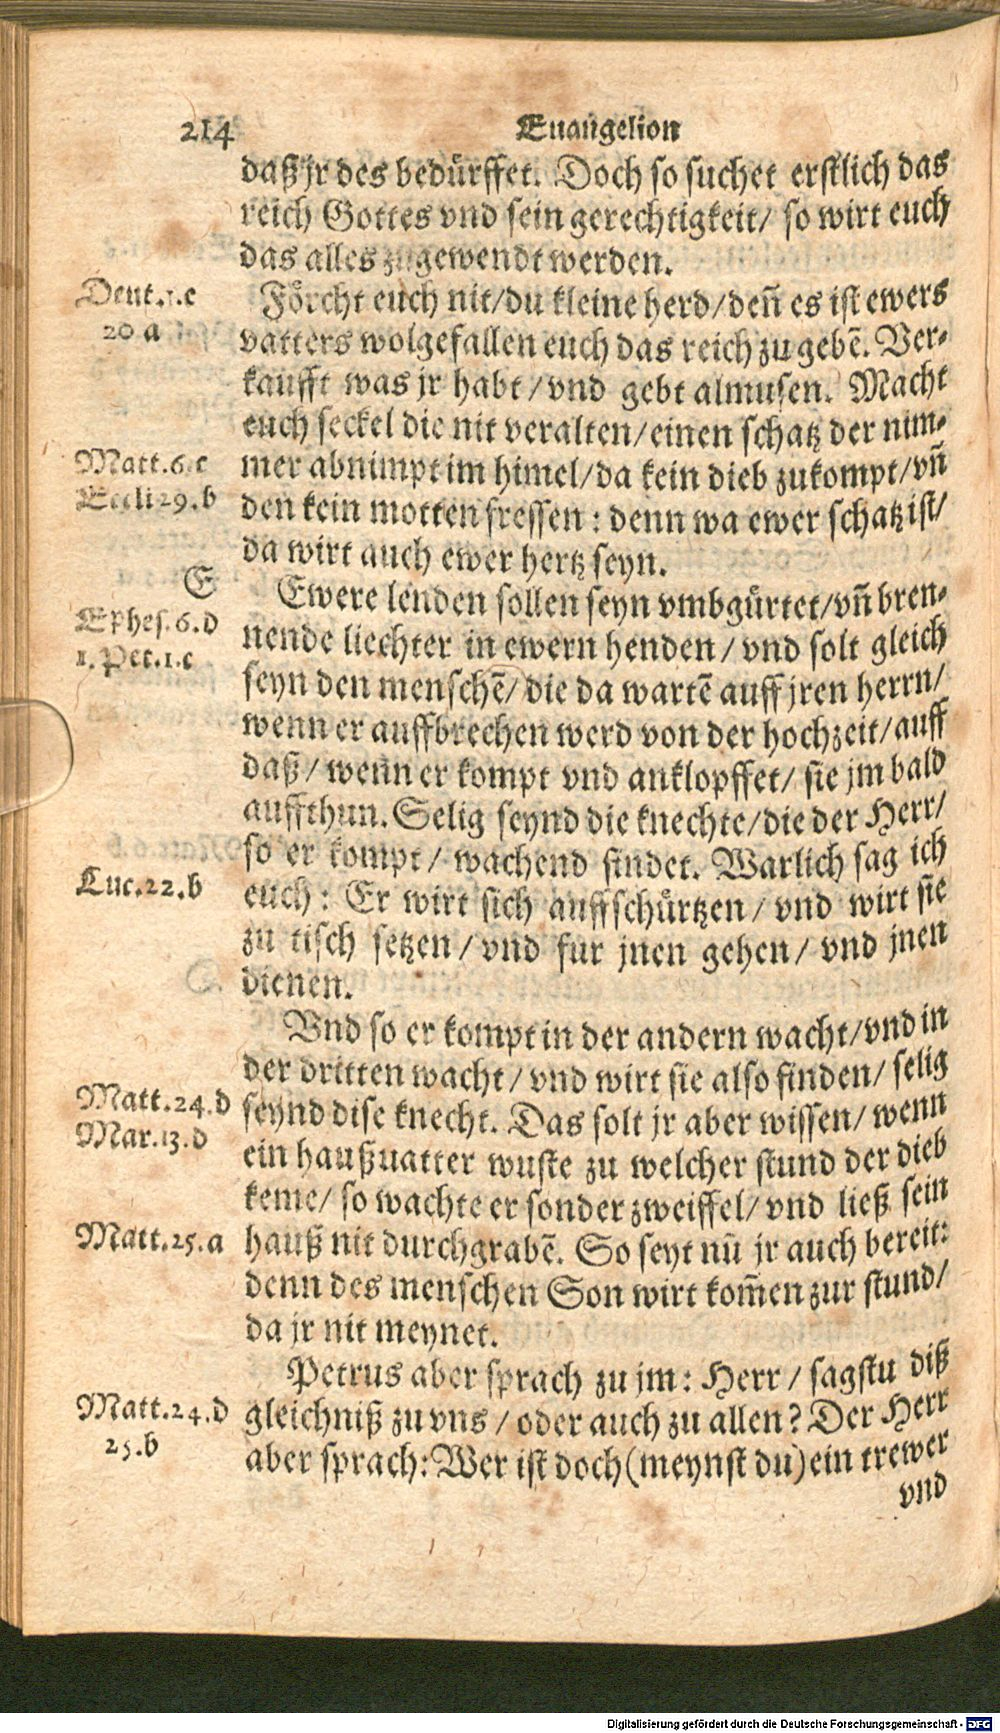 214 Euangelion
daß jr des bedürffet. Doch so suchet erstlich das
reich Gottes vnd sein gerechtigkeit/ so wirt euch
das alles zugewendt werden.
Deut.1.c
20 a
Förcht euch nit/du kleine herd/deñ es ist ewers
vatters wolgefallen euch das reich zu gebẽ. Ver-
kaufft was jr habt/vnd gebt almusen. Macht
euch seckel die nit veralten/einen schatz der nim-
Matt.6.c
Eccli 29.b
mer abnimpt im himel/da kein dieb zukompt/vñ
den kein motten fressen : denn wa ewer schatz ist/
da wirt auch ewer hertz seyn.
E
Ephes.6.d
1.Pet.1.c
Ewere lenden sollen seyn vmbgürtet/vñ bren-
nende liechter in ewern henden/ vnd solt gleich
seyn den menschẽ/ die da wartẽ auff jren herrn/
wenn er auffbrechen werd von der hochzeit/auff
daß/ wenn er kompt vnd anklopffet/ sie jm bald
auffthun. Selig seynd die knechte/die der Herr/
so er kompt/ wachend findet. Warlich sag ich
Luc.22.b
euch : Er wirt sich auffschürtzen/ vnd wirt sie
zu tisch setzen/ vnd fur jnen gehen/ vnd jnen
dienen.
Vnd so er kompt in der andern wacht/vnd in
der dritten wacht/ vnd wirt sie also finden/ selig
Matt.24.d
Mar.13.d
seynd dise knecht. Das solt jr aber wissen/ wenn
ein haußuatter wuste zu welcher stund der dieb
keme/ so wachte er sonder zweiffel/ vnd ließ sein
Matt.25.a
hauß nit durchgrabẽ. So seyt nũ jr auch bereit:
denn des menschen Son wirt kom̃en zur stund/
da jr nit meynet.
Petrus aber sprach zu jm : Herr/ sagstu diß
Matt.24.d
25.b
gleichniß zu vns/ oder auch zu allen? Der Herr
aber sprach: Wer ist doch (meynst du) ein trewer
vnd
Digitalisierung gefördert durch die Deutsche Forschungsgemeinschaft - DFG